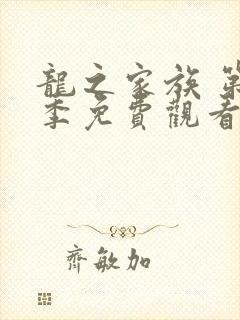 龍之家族 第
季免費觀看
齊敏加